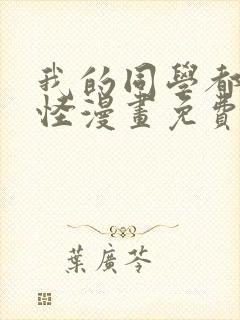 我的同學都
怪漫畫免費
葉廣芩